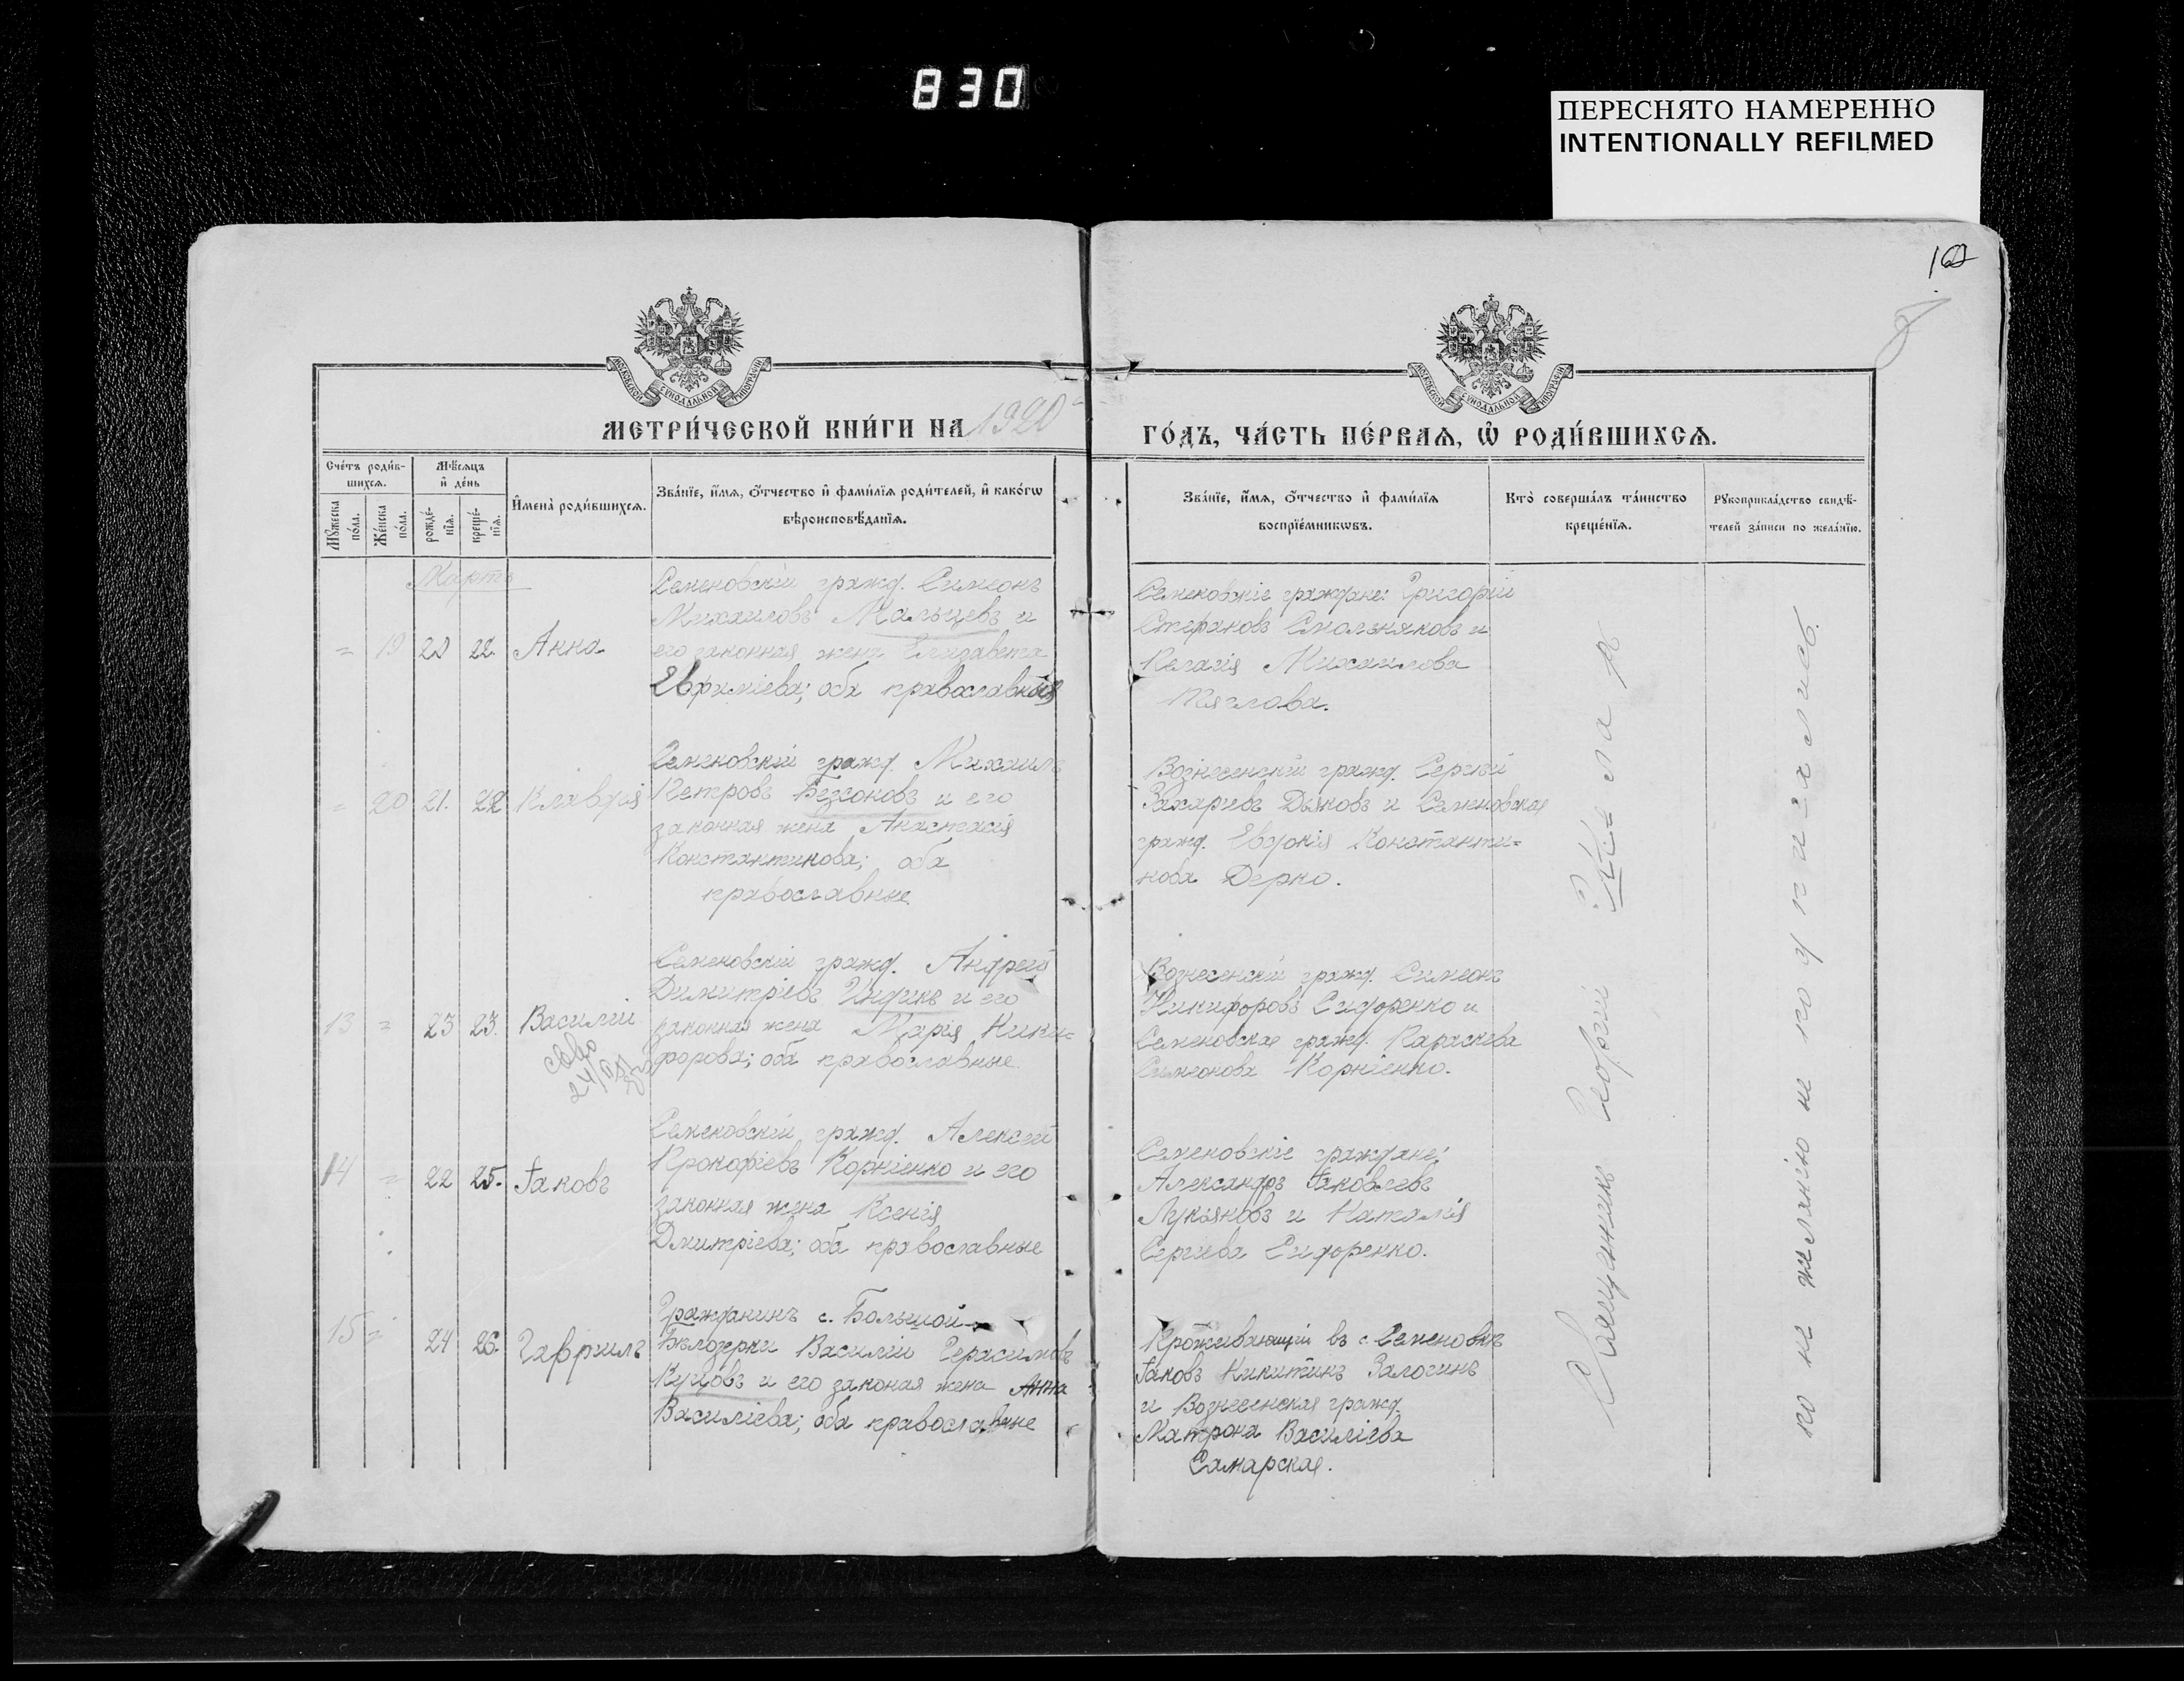 830
ПЕРЕСНЯТО НАМЕРЕННО
INTENTIONALLY REFILMED
162
МОСКОВСКОЙ СѴНОДАЛЬНОЙ ТИПОГРАФІИ
МОСКОВСКОЙ СѴНОДАЛЬНОЙ ТИПОГРАФІИ
МЕТРИ́ЧЕСКОЙ КНИ́ГИ НА 1920
ГО́ДЪ, ЧА́СТЬ ПЕ́РВАѦ, Ѡ҆ РОДИ́ВШИХСѦ.
Сче́тъ роди́в-
шихсѧ.
Мѣ́сѧцъ
и҆ де́нь
Мꙋ́жеска
по́ла.
Же́нска
по́ла.
рожде́-
нїѧ.
креще́-
нїѧ.
И҆мена̀ роди́вшихсѧ.
Зва́нїе, и҆́мѧ, ѻ҆́тчество и҆ фами́лїѧ роди́телей, и҆ како́гѡ
вѣроисповѣ́данїѧ.
Зва́нїе, и҆́мѧ, ѻ҆́тчество и҆ фами́лїѧ
воспрїе́мникѡвъ.
Кто̀ соверша́лъ та́инство
креще́нїѧ.
Рꙋкоприкла́дство свидѣ́-
телей за́писи по жела́нїю.
Мартъ
= 19 20 22. Анна
Семеновскій гражд. Симеонъ
Михаиловъ Мальцевъ и
его законная жена Елизавета
Евфиміева; оба православныя
Семеновскіе граждане: Григорій
Стефановъ Смольняковъ и
Пелагія Михаилова
= 20 21. 22 Клавдія
Семеновскій гражд. Михаилъ
Петровъ Безсоновъ и его
законная жена Анастасія
Константинова; оба
православные
Вознесенскій гражд. Сергій
Захаріевъ Дьяковъ и Семеновская
гражд. Евдокія Константи=
нова Дерко.
13 = 23 23. Василій
Семеновскій гражд. Андрей
Димитріевъ Индикъ и его
законная жена Марія Ники=
форова; оба православные.
Вознесенскій гражд. Симеонъ
Никифоровъ Сидоренко и
Семеновская гражд. Параскева
Симеонова Корніенко.
14 = 22 25. Іаковъ
Семеновскій гражд. Алексій
Прокофіевъ Корніенко и его
законная жена Ксенія
Дмитріева; оба православные
Семеновскіе граждане:
Александръ Іаковлевъ
Лукьяновъ и Наталія
Сергіева Сидоренко.
15 = 24 26. Гавріилъ
Гражданинъ с. Большой
Бѣлозерки Василій Герасимовъ
Куцовъ и его законая жена Анна
Василіева; оба православные
Проживающій въ с. Семеновкѣ
Іаковъ Никитинъ Залогинъ
и Вознесенская гражд.
Матрона Василіева
Самарская.
Священникъ Георгій
по не желанію не подписались.